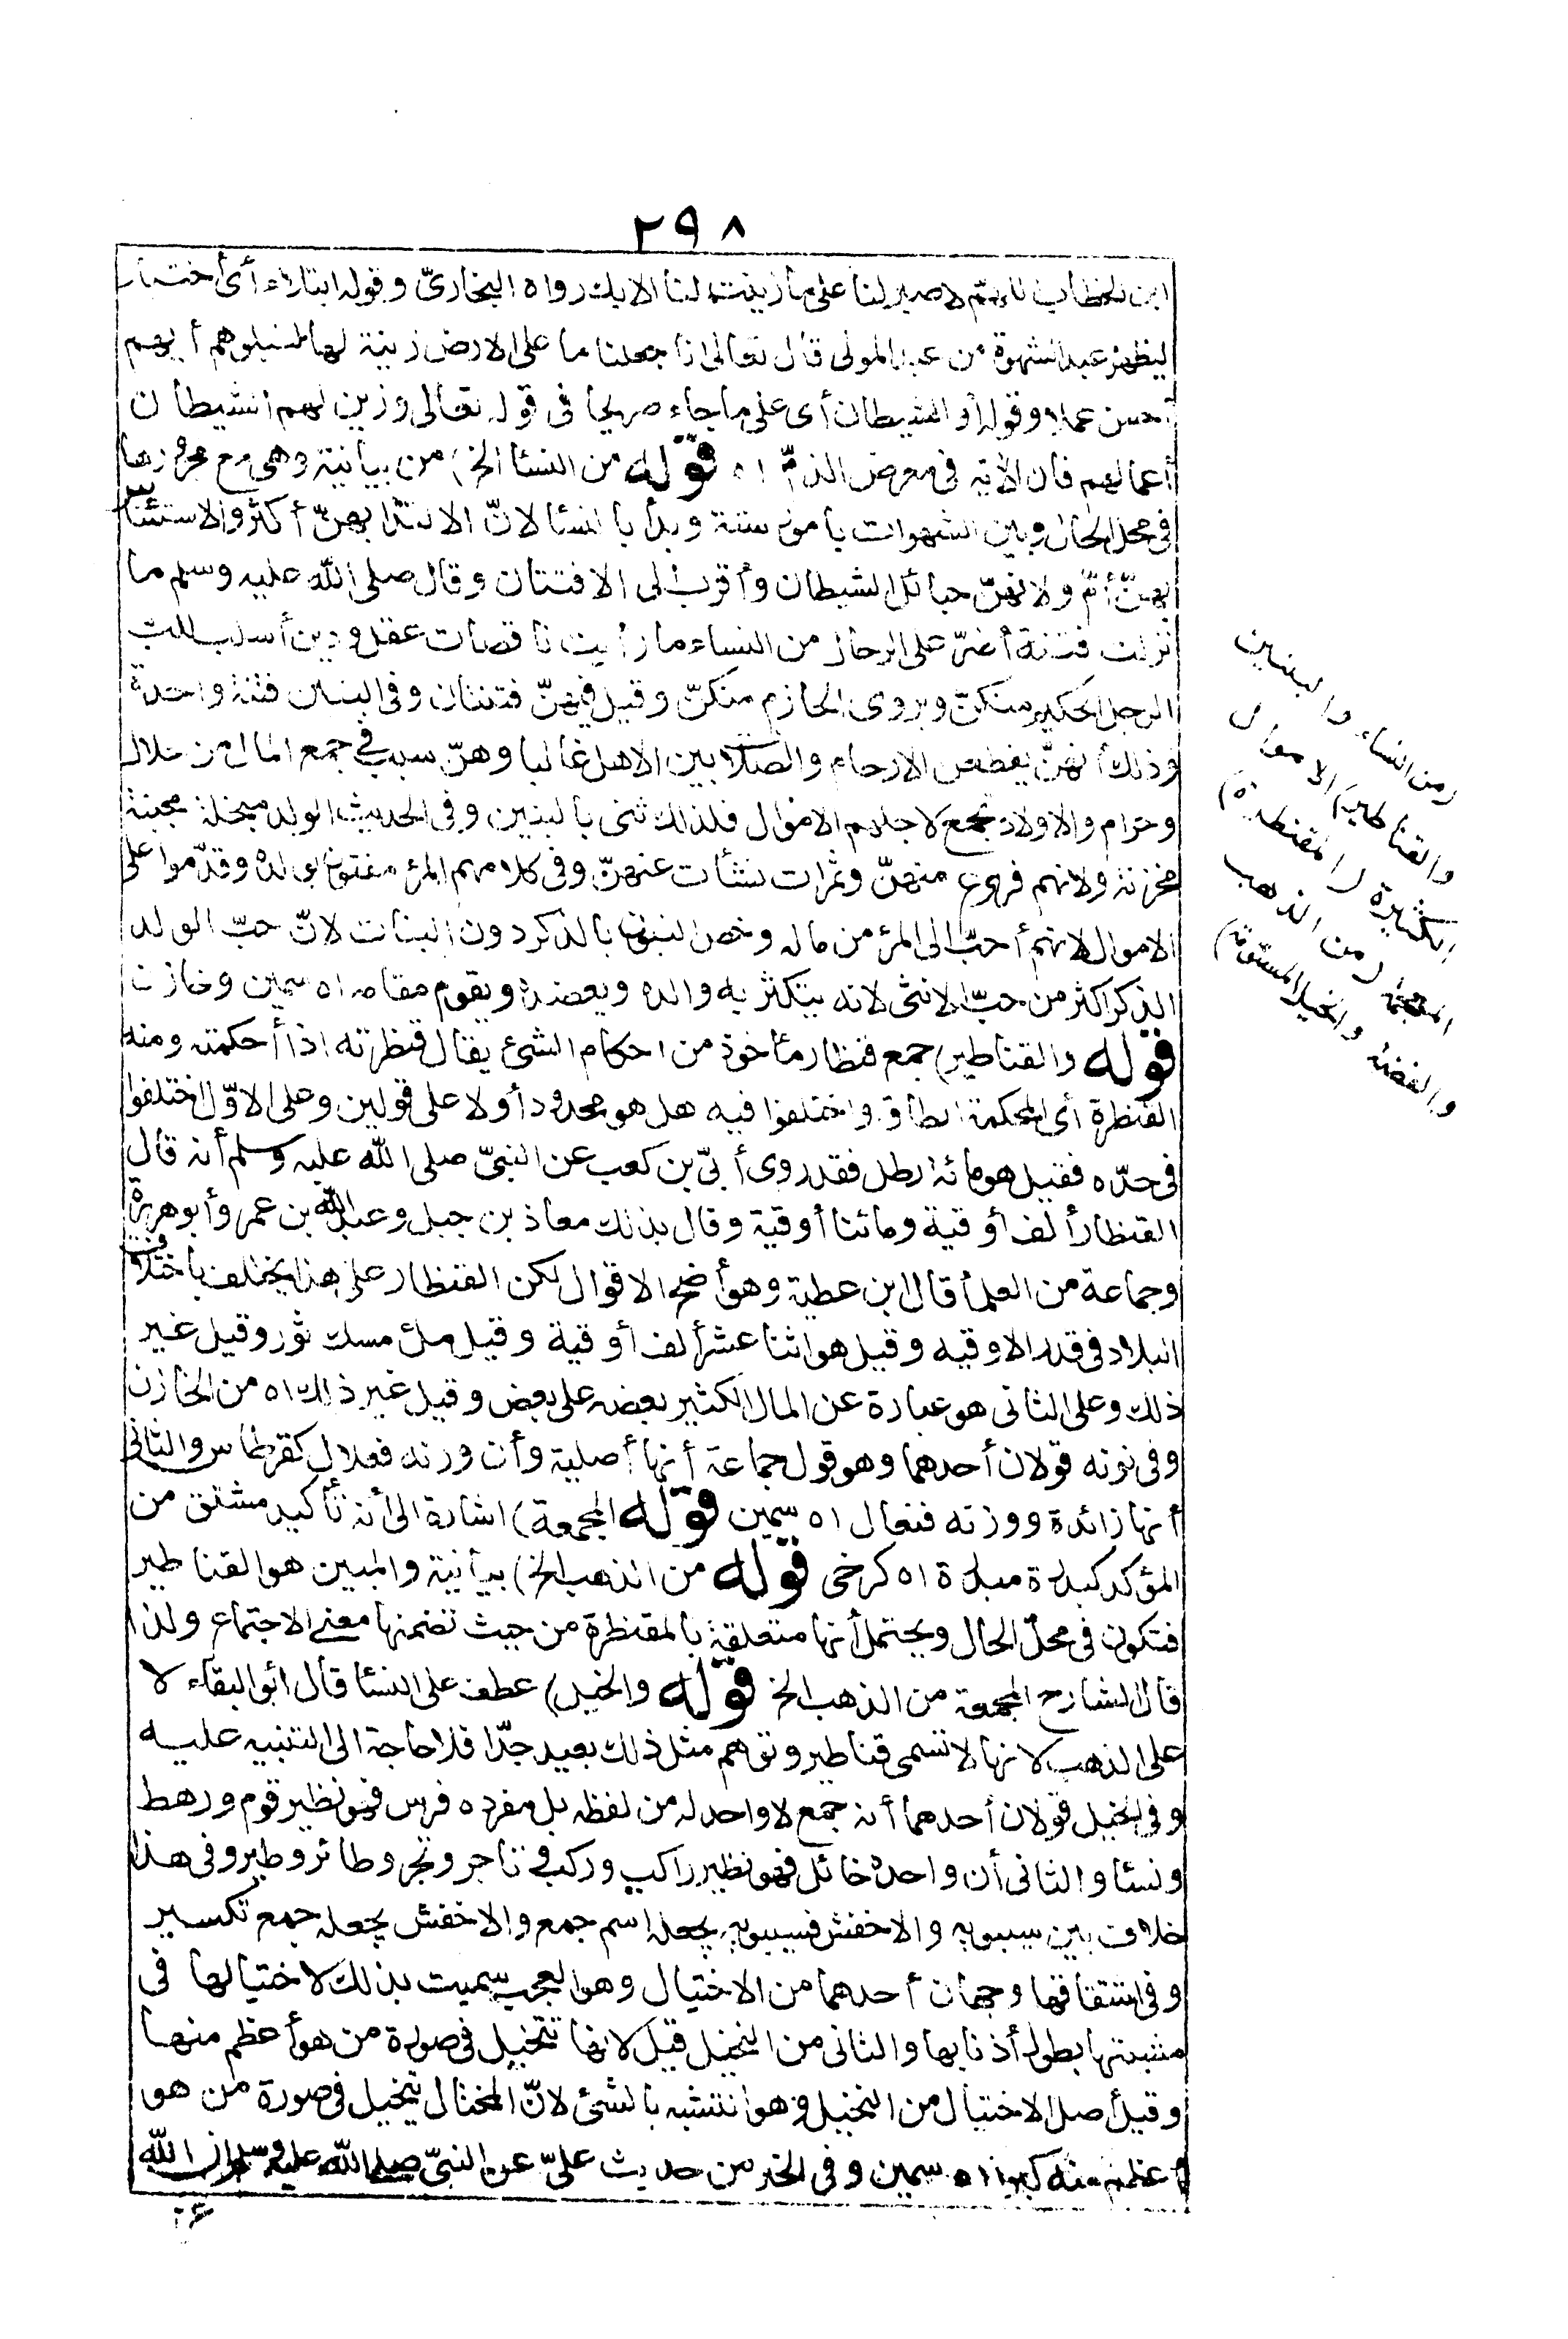 ٢٩٨
ابن الخطاب اللهم لا صبر لنا على ما زينت لنا الا بك رواه البخاريّ وقوله ابتلاء أى اختبار
ليظهر عبد الشهوة من عبد المولى قال تعالى انا جعلنا ما على الارض زينة لها لنبلوهم أيهم
أحسن عملا وقوله أو الشيطان أى على ما جاء صريحا فى قوله تعالى وزين لهم الشيطان
أعمالهم فان الآية فى معرض الذمّ اه قوله من النسا الخ) من بيانية وهى مع مجرورها
فى محل الحال وبين الشهوات بأمور ستة وبدأ بالنسا لانّ الالتذا بهنّ أكثر والاستئناس
بهنّ أتمّ ولانهنّ حبائل الشيطان وأقرب الى الافتتان وقال صلى الله عليه وسلم ما
تركت فتنة أضرّ على الرجال من النساء ما رأيت ناقصات عقل ودين أسلب للب
الرجل الحكيم منكنّ ويروى الحازم منكنّ وقيل فيهنّ فتنتان وفى البنين فتنة واحدة
وذلك أنهنّ يقطعن الارحام والصلا بين الاهل غالبا وهنّ سبب فى جمع المال من حلال
وحرام والاولاد تجمع لاجلهم الاموال فلذلك ثنى بالبنين وفى الحديث الولد مبخلة مجبنة
محزنة ولانهم فروع منهنّ وثمرات نشأت عنهنّ وفى كلامهم المرء مفتون بولده وقدّموا على
الاموال لانهم أحبّ الى المرء من ماله وخص البنين بالذكر دون البنات لانّ حبّ الولد
الذكر اكثر من حبّ الانثى لانه يتكثر به والده ويعضده ويقوم مقامه اه سمين وخازن
قوله والقناطير) جمع قنطار مأخوذ من احكام الشئ يقال قنطرته اذا أحكمته ومنه
القنطرة أى المحكمة الطاق واختلفوا فيه هل هو محدود أو لا على قولين وعلى الاوّل اختلفوا
فى حدّه فقيل هو مائة رطل فقد روى أبىّ بن كعب عن النبىّ صلى الله عليه وسلم أنه قال
القنطار ألف أوقية ومائتا أوقية وقال بذلك معاذ بن جبل وعبد الله بن عمر وأبو هريرة
وجماعة من العلمأ قال ابن عطية وهو أصح الاقوال لكن القنطار على هذا يختلف باختلاف
البلاد فى قدر الاوقيه وقيل هو اثنا عشر ألف أوقية وقيل ملئ مسك ثور وقيل غير
ذلك وعلى الثانى هو عبارة عن المال الكثير بعضه على بعض وقيل غير ذلك اه من الخازن
وفى نونه قولان أحدهما وهو قول جماعة أنها أصلية وأن وزنه فعلال كقرطاس والثانى
أنها زائدة ووزنه فنعال اه سمين قوله المجمعة) اشارة الى أنه تأكيد مشتق من
المؤكد كبدرة مبدرة اه كرخى قوله من الذهب الخ) بيانية والمبين هو القناطير
فتكون فى محلّ الحال ويحتمل أنها متعلقة بالمقنطرة من حيث تضمنها معنى الاجتماع ولذا
قال الشارح المجمعة من الذهب الخ قوله والخيل) عطف على النسا قال أبو البقاء لا
على الذهب لانها لا تسمى قناطير وتوهم مثل ذلك بعيد جدّا فلا حاجة الى التنبيه عليه
وفى الخيل قولان أحدهما أنه جمع لا واحد له من لفظه بل مفرده فرس فهو نظير قوم ورهط
ونسا والثانى أن واحده خائل فهو نظير راكب وركب فى تاجر وتجر وطائر وطير وفى هذا
خلاف بين سيبويه والاخفش فسيبويه يجعله اسم جمع والاخفش يجعله جمع تكسير
وفى اشتقاقها وجهان أحدهما من الاختيال وهو العجب سميت بذلك لاختيالها فى
مشيتها بطول أذنابها والثانى من التخيل قيل لانها تتخيل فى صورة من هو أعظم منها
وقيل أصل الاختيال من التخيل وهو التشبه بالشئ لانّ المختال يتخيل فى صورة من هو
أعظم منه كبرا اه سمين وفى الخبر من حديث علىّ عن النبىّ صلى الله عليه وسلم ان الله
(من النساء والبنين
والقناطير) الاموال
الكثيرة (المقنطرة)
المجمعة (من الذهب
والفضة والخيل المسوّمة)